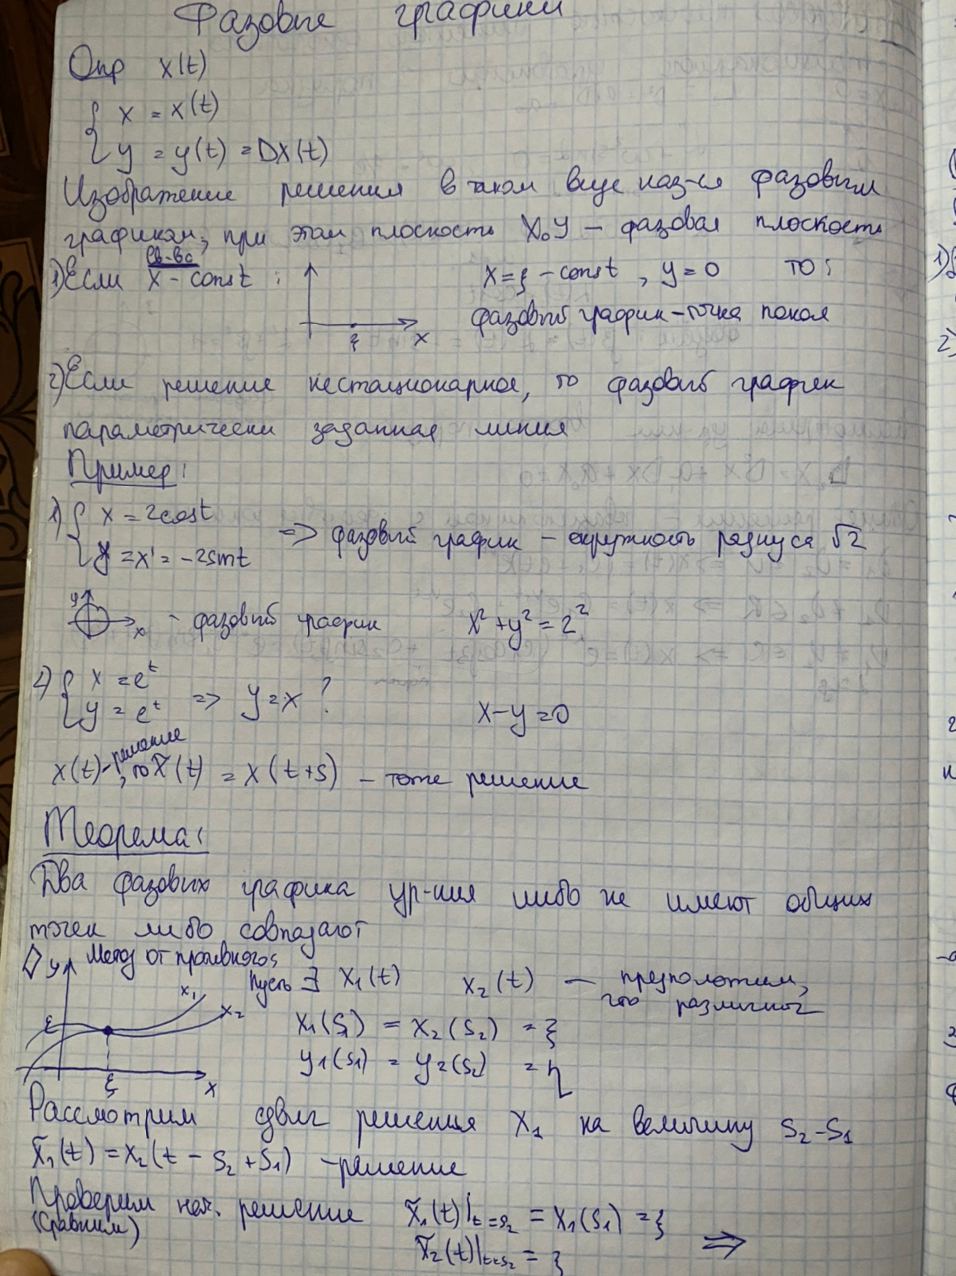 Фазовые графики
Опр x(t)
{ x = x(t)
{ y = y(t) = Dx(t)
Изображение решения в таком виде наз-ся фазовым
графиком, при этом плоскость X0Y – фазовая плоскость
св-во
1) Если x - const : x = ξ - const, y = 0 то:
ξ x фазовый график - точка покоя
2) Если решение нестационарное, то фазовый график
параметрически заданная линия
Пример:
1) { x = 2cost
{ y = x' = -2sint => фазовый график – окружность радиуса √2
y x - фазовый график x² + y² = 2²
2) { x = e^t
{ y = e^t => y = x ? x - y = 0
x(t) - решение, то x̃(t) = x(t+s) – тоже решение
Теорема:
Два фазовых графика ур-ния либо не имеют общих
точек либо совпадают
◊ y Метод от противного;
Пусть ∃ x₁(t) x₂(t) – предположим,
что различног
x₁ x₂ ξ x
x₁(s₁) = x₂(s₂) = ξ
y₁(s₁) = y₂(s₂) = η
Рассмотрим сдвиг решения x₁ на величину s₂-s₁
x̃₁(t) = x₂(t - s₂ + s₁) - решение
Проверим нач. решение x̃₁(t)|t=s₂ = x₁(s₁) = ξ
(Сравним) x̃₂(t)|t=s₂ = ξ =>